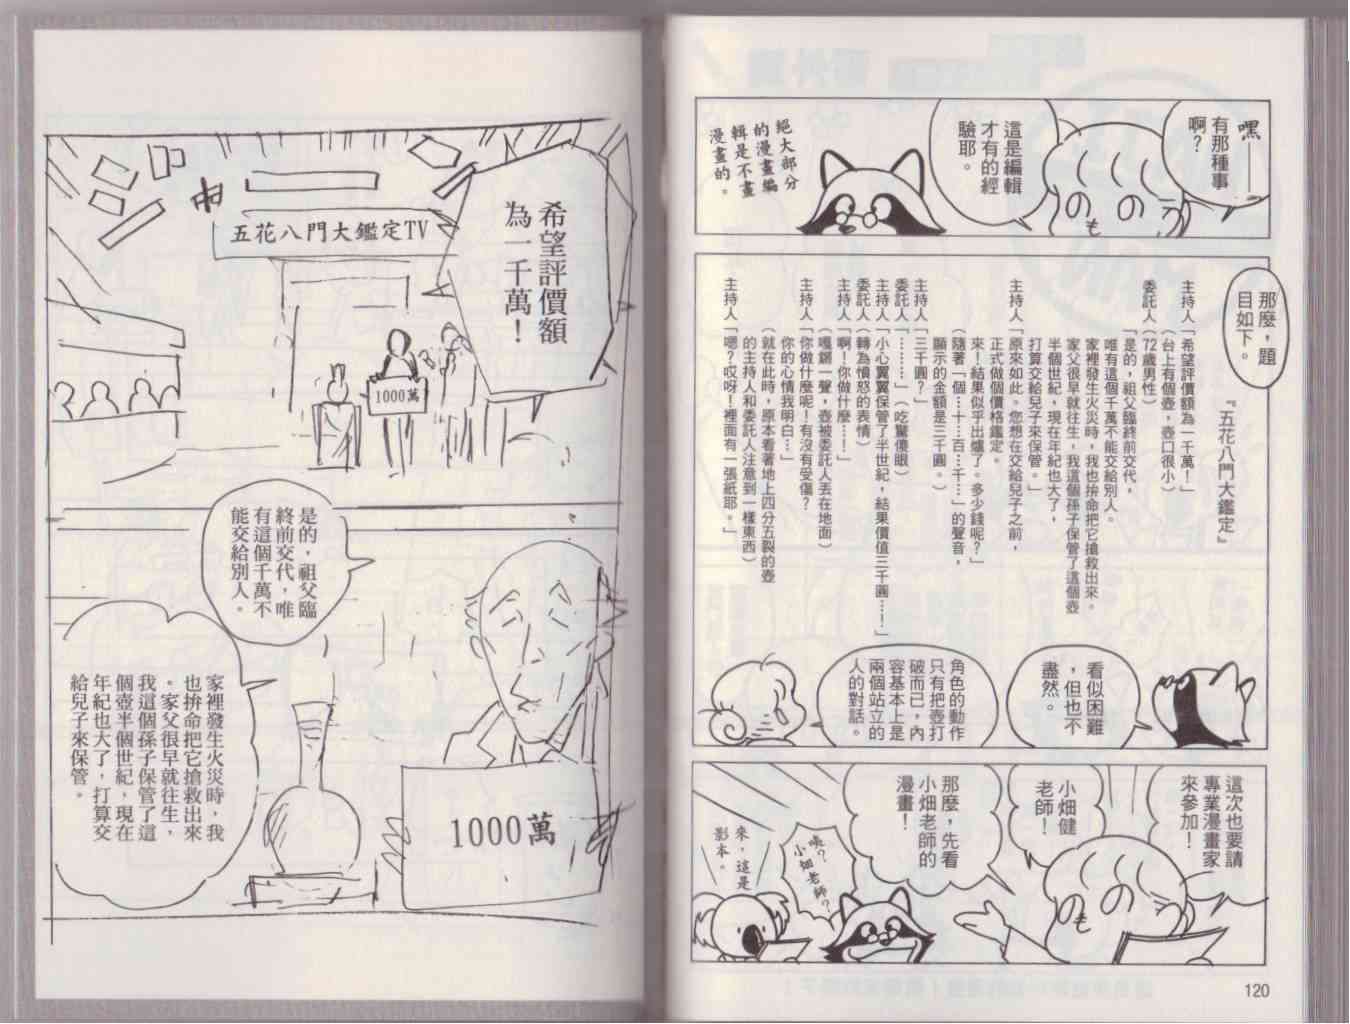 嘿——
有那種事
啊？
這是編輯
才有的經
驗耶。
絕大部分
的漫畫編
輯是不畫
漫畫的。
那麼，題
目如下。
『五花八門大鑑定』
主持人「希望評價額為一千萬！」
（台上有個壺，壺口很小）
委託人（72歲男性）
「是的，祖父臨終前交代，
唯有這個千萬不能交給別人。
家裡發生火災時，我也拚命把它搶救出來。
家父很早就往生，我這個孫子保管了這個壺
半個世紀，現在年紀也大了，
打算交給兒子來保管。」
主持人「原來如此。您想在交給兒子之前，
正式做個價格鑑定。
來！結果似乎出爐了。多少錢呢？」
（隨著「個…十…百…千…」的聲音，
顯示的金額是三千圓。）
主持人「三千圓？」
委託人「………」（吃驚傻眼）
主持人「小心翼翼保管了半世紀，結果價值三千圓…！」
委託人（轉為憤怒的表情）
主持人「啊！你做什麼……」
（嘎鏘一聲，壺被委託人丟在地面）
「你做什麼呢！有沒有受傷？
主持人「你的心情我明白…」
（就在此時，原本看著地上四分五裂的壺
的主持人和委託人注意到一樣東西）
主持人「嗯？哎呀！裡面有一張紙耶。」
看似困難
，但也不
盡然。
角色的動作
只有把壺打
破而已，內
容基本上是
兩個站立的
人的對話。
這次也要請
專業漫畫家
來參加！
小畑健
老師！
那麼，先看
小畑老師的
漫畫！
咦？
小畑老師？
來，這是
影本。
120
希望評價額
為一千萬！
五花八門大鑑定TV
1000萬
是的，祖父臨
終前交代，唯
有這個千萬不
能交給別人。
家裡發生火災時，我
也拚命把它搶救出來
。家父很早就往生，
我這個孫子保管了這
個壺半個世紀，現在
年紀也大了，打算交
給兒子來保管。
1000萬